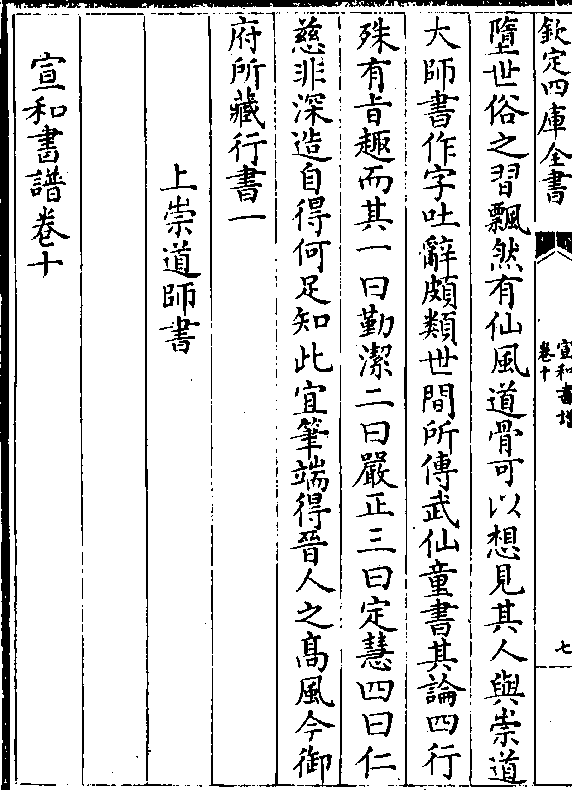 欽定四庫全書
宣和書譜
卷十
七
墮世俗之習飄然有仙風道骨可以想見其人與崇道
大師書作字吐辭頗類世間所傳武仙童書其論四行
殊有旨趣而其一曰勤潔二曰嚴正三曰定慧四曰仁
慈非深造自得何足知此宜筆端得晉人之髙風今御
府所藏行書一
上崇道師書
宣和書譜卷十